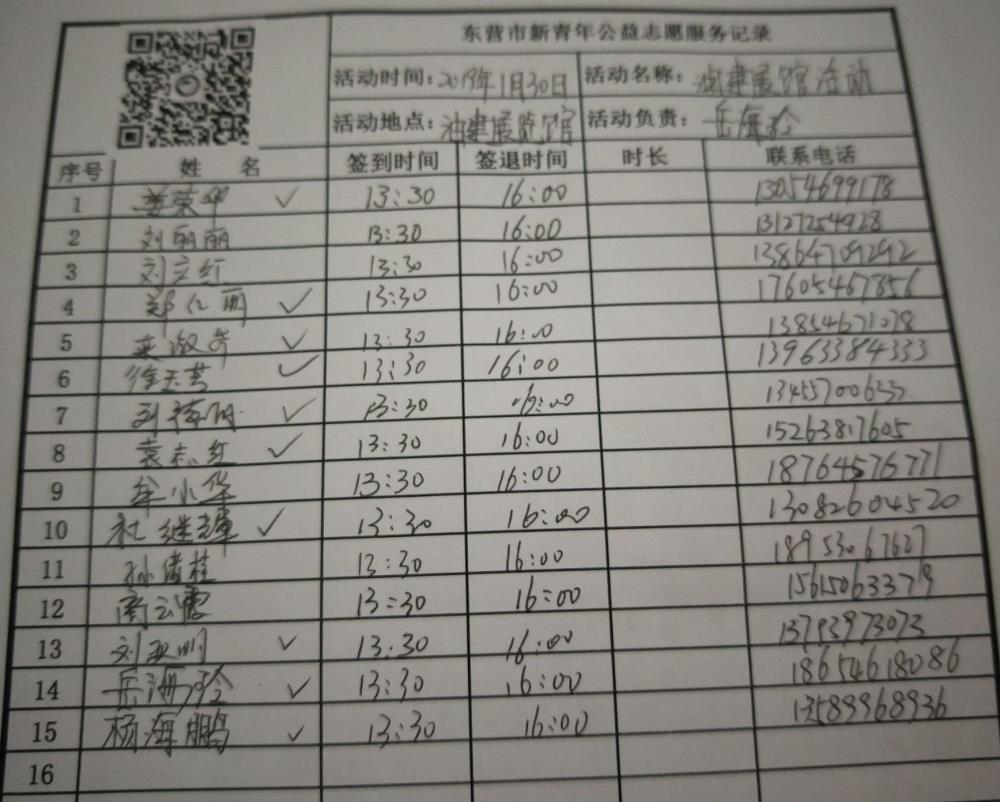 东营市新青年公益志愿服务记录
活动时间：2019年1月30日 活动名称：油建展馆活动
活动地点：油建展览馆 活动负责：岳海玲
序号 姓 名 签到时间 签退时间 时长 联系电话
1 荣华 ✓ 13:30 16:00 13054699178
2 刘丽丽 13:30 16:00 13127254928
3 刘立红 13:30 16:00 13864709292
4 郑仁丽 ✓ 13:30 16:00 17605467856
5 淑芳 ✓ 13:30 16:00 13854671078
6 徐玉芸 ✓ 13:30 16:00 13963384333
7 刘 ✓ 13:30 16:00 13455700633
8 袁志红 ✓ 13:30 16:00 15263817605
9 牟小华 13:30 16:00 18764576771
10 杜继 ✓ 13:30 16:00 130826004520
11 孙绪桂 13:30 16:00 18953067627
12 商云霞 13:30 16:00 15615063379
13 刘亚明 ✓ 13:30 16:00 13793973073
14 岳海玲 ✓ 13:30 16:00 18654618086
15 杨海鹏 ✓ 13:30 16:00 13589968936
16